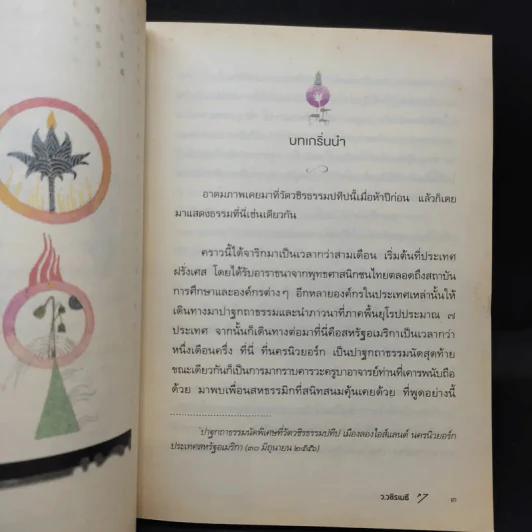 บทเกริ่นนำ
อาตมภาพเคยมาที่วัดวชิรธรรมปทีปนี้เมื่อห้าปีก่อน แล้วก็เคย
มาแสดงธรรมที่นี่เช่นเดียวกัน
คราวนี้ได้จาริกมาเป็นเวลากว่าสามเดือน เริ่มต้นที่ประเทศ
ฝรั่งเศส โดยได้รับอาราธนาจากพุทธศาสนิกชนไทยตลอดถึงสถาบัน
การศึกษาและองค์กรต่างๆ อีกหลายองค์กรในประเทศเหล่านั้นให้
เดินทางมาปาฐกถาธรรมและนำภาวนาที่ภาคพื้นยุโรปประมาณ ๗
ประเทศ จากนั้นก็เดินทางต่อมาที่นี่คือสหรัฐอเมริกาเป็นเวลากว่า
หนึ่งเดือนครึ่ง ที่นี่ ที่นครนิวยอร์ก เป็นปาฐกถาธรรมนัดสุดท้าย
ขณะเดียวกันก็เป็นการมากราบคารวะครูบาอาจารย์ท่านที่เคารพนับถือ
ด้วย มาพบเพื่อนสหธรรมิกที่สนิทสนมคุ้นเคยด้วย ที่พูดอย่างนี้
ปาฐกถาธรรมนัดพิเศษที่วัดวชิรธรรมปทีป เมืองลองไอส์แลนด์ นครนิวยอร์ก
ประเทศสหรัฐอเมริกา (๓๐ มิถุนายน ๒๕๕๖)
ว.วชิรเมธี